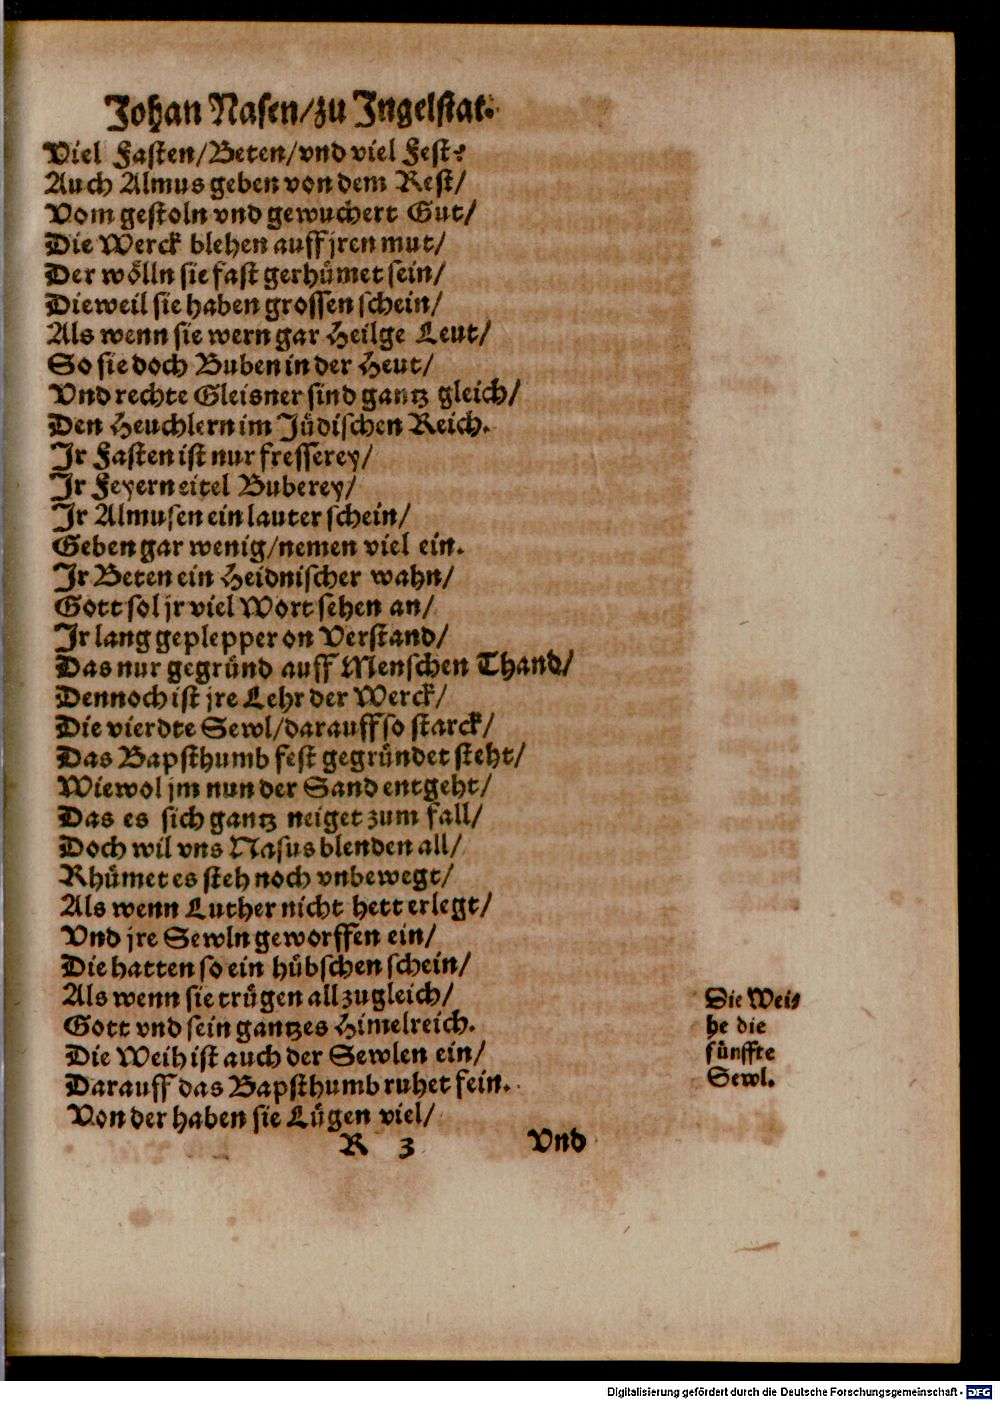 Johan Nasen/zu Jngelstat.
Viel Fasten/Beten/vnd viel Fest:
Auch Almus geben von dem Rest/
Vom gestoln vnd gewuchert Gut/
Die Werck blehen auff jren mut/
Der wölln sie fast gerhümet sein/
Dieweil sie haben grossen schein/
Als wenn sie wern gar Heilge Leut/
So sie doch Buben in der Heut/
Vnd rechte Gleisner sind gantz gleich/
Den Heuchlern im Jüdischen Reich.
Jr Fasten ist nur fresserey/
Jr Feyern eitel Buberey/
Jr Almusen ein lauter schein/
Geben gar wenig/nemen viel ein.
Jr Beten ein Heidnischer wahn/
Gott sol jr viel Wort sehen an/
Jr lang geplepper on Verstand/
Das nur gegründ auff Menschen Thand/
Dennoch ist jre Lehr der Werck/
Die vierdte Sewl/darauff so starck/
Das Bapsthumb fest gegründet steht/
Wiewol jm nun der Sand entgeht/
Das es sich gantz neiget zum fall/
Doch wil vns Nasus blenden all/
Rhümet es steh noch vnbewegt/
Als wenn Luther nicht hett erlegt/
Vnd jre Sewln geworffen ein/
Die hatten so ein hübschen schein/
Als wenn sie trügen all zu gleich/
Gott vnd sein gantzes Himelreich.
Die Weih ist auch der Sewlen ein/
Darauff das Bapsthumb ruhet fein.
Von der haben sie Lügen viel/
Die Wei⸗
he die
fünffte
Sewl.
R 3 Vnd
Digitalisierung gefördert durch die Deutsche Forschungsgemeinschaft - DFG